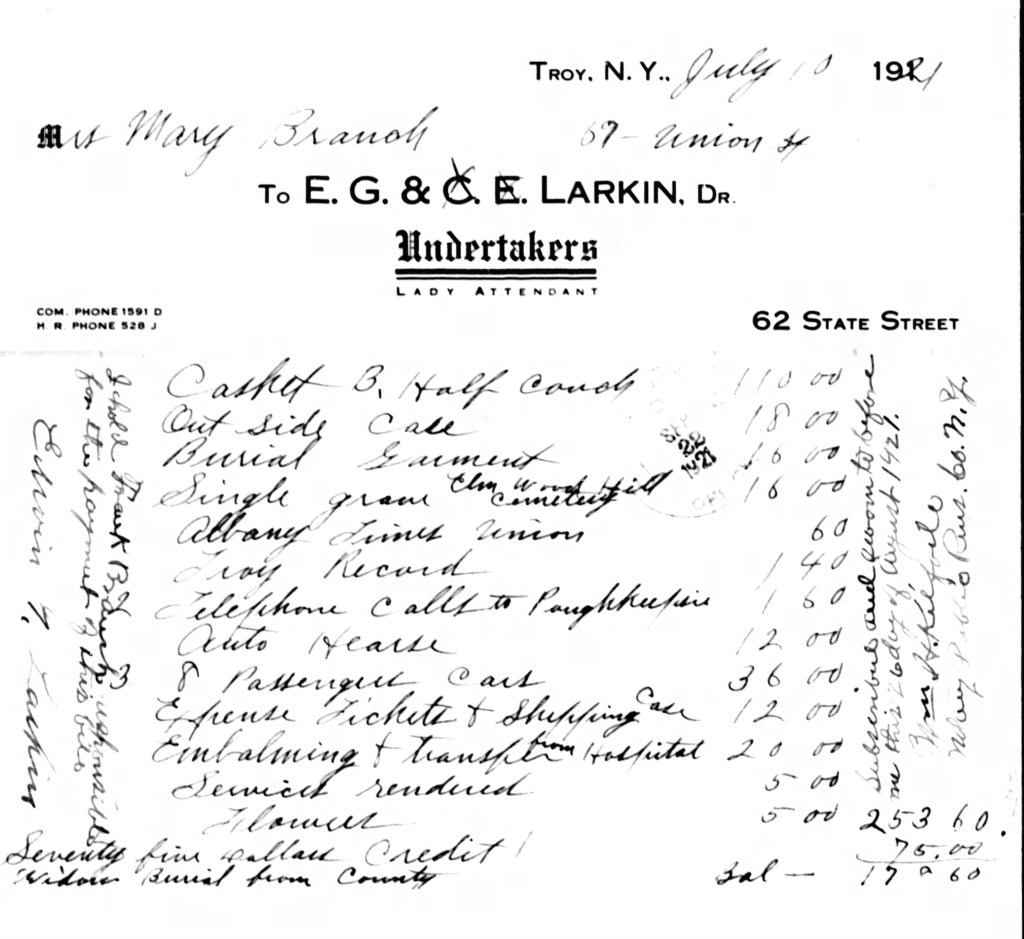 TROY, N. Y., July 10 1921
Mrs Mary Branch 67 - Union St
To E. G. & C. E. LARKIN, DR.
Undertakers
LADY ATTENDANT
COM. PHONE 1591 D
H. R. PHONE 528 J
62 STATE STREET
Casket B. Half couch 110 00
Out side Case 18 00
Burial Garment 16 00
Single grave Elm Wood Hill Cemetery 16 00
Albany Times Union 60
Troy Record 1 40
Telephone calls to Poughkeepsie 1 60
Auto Hearse 12 00
8 Passengers Cars 36 00
Expense Tickets & Shipping Case 12 00
Embalming & transfer from Hospital 20 00
Services rendered 5 00
Flowers 5 00 253 60
Seventy five dollars Credit 75.00
Widow Burial from County Bal — 17 60
I hold Frank B. responsible
for the payment of this bill
Edwin G. Larkin
SEP
22
1921
Subscribed and sworn to before
me this 26 day of August 1921.
Wm H. Kilfoile
Notary Public Rens. Co. N.Y.